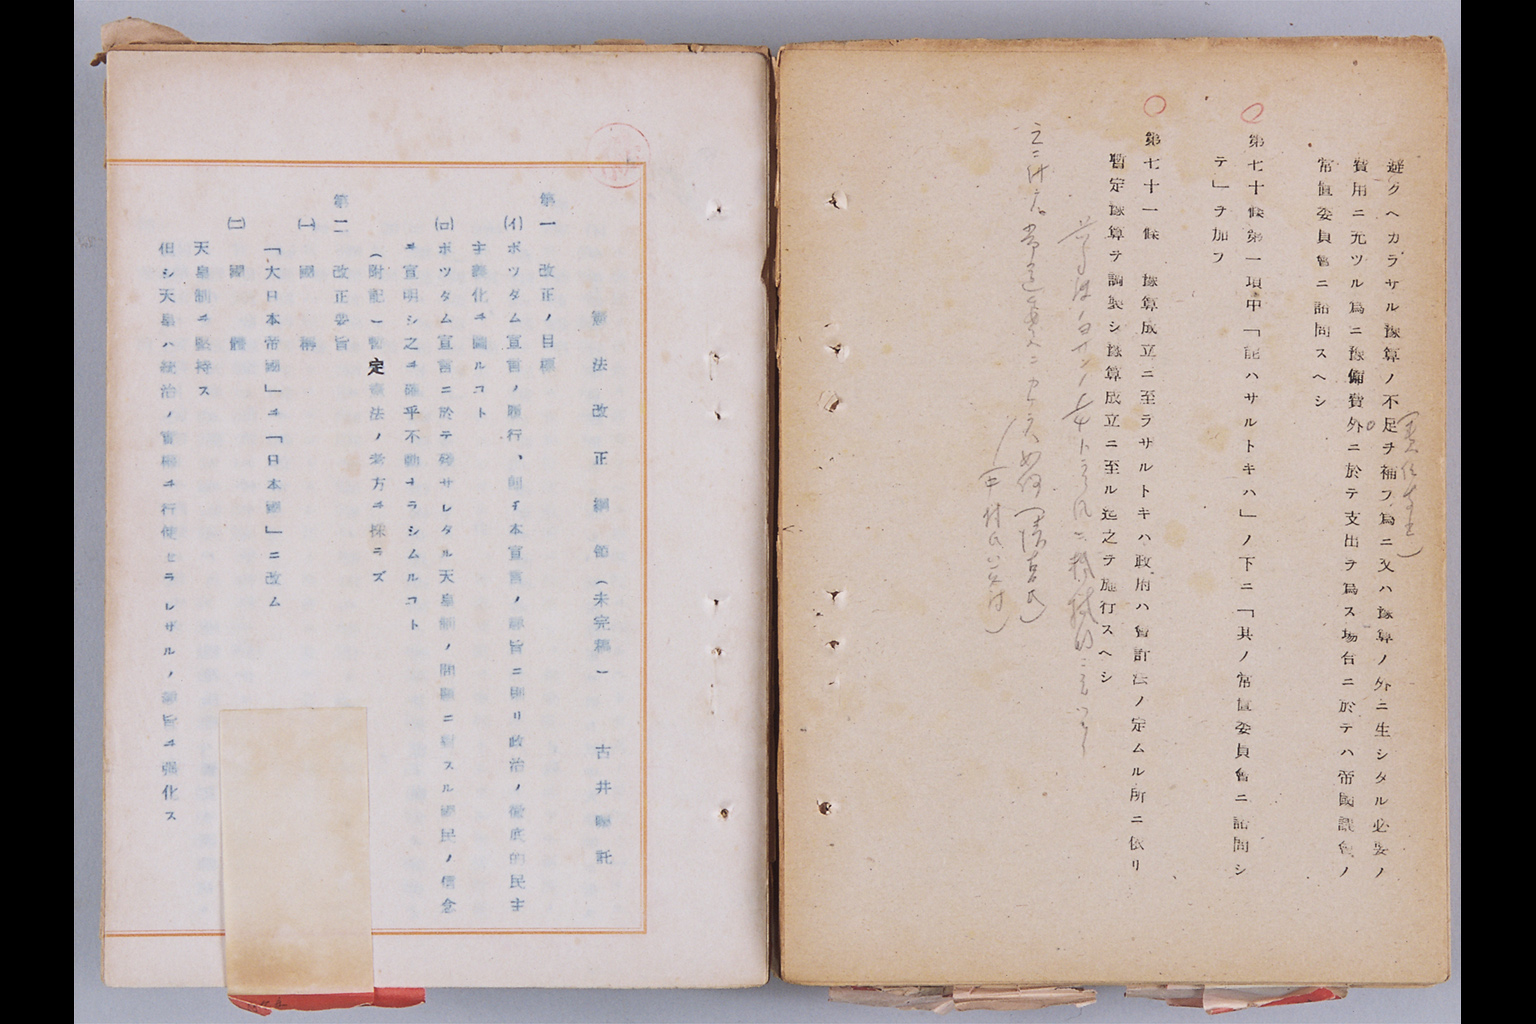 避クヘカラサル豫算ノ不足ヲ補フ爲ニ又ハ豫算ノ外ニ生シタル必要ノ
費用ニ充ツル爲ニ豫備費外ニ於テ支出ヲ爲ス場合ニ於テハ帝國議會ノ
常置委員會ニ諮問スヘシ
第七十條第一項中「能ハサルトキハ」ノ下ニ「其ノ常置委員會ニ諮問シ
テ」ヲ加フ
第七十一條 豫算成立ニ至ラサルトキハ政府ハ會計法ノ定ムル所ニ依リ
暫定豫算ヲ調製シ豫算成立ニ至ル迄之ヲ施行スヘシ
憲法改正綱領(未完稿) 古井囑託
第一 改正ノ目標
(イ)ポツダム宣言ノ履行、卽チ本宣言ノ趣旨ニ則リ政治ノ徹底的民主
主義化ヲ圖ルコト
(ロ)ポツダム宣言ニ於テ殘サレタル天皇制ノ問題ニ對スル國民ノ信念
ヲ宣明シ之ヲ確乎不動ナラシムルコト
(附記)暫定憲法ノ考方ヲ採ラズ
第二 改正要旨
(一) 國稱
「大日本帝國」ヲ「日本國」ニ改ム
(二) 國體
天皇制ヲ堅持ス
但シ天皇ハ統治ノ實權ヲ行使セラレザルノ趣旨ヲ强化ス